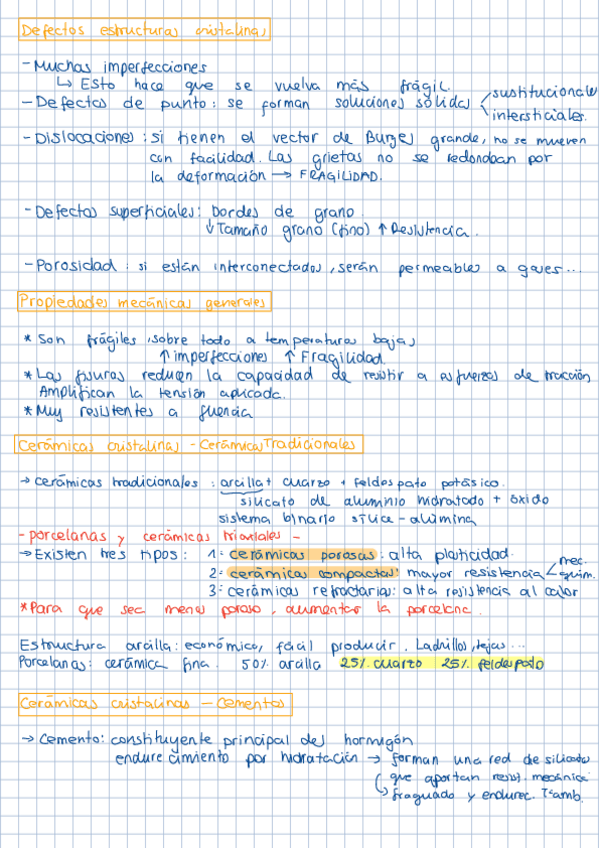 Defectos estructuras cristalinas
- Muchas imperfecciones
↳ Esto hace que se vuelva más frágil.
- Defectos de punto: se forman soluciones sólidas < sustitucionales
intersticiales.
- Dislocaciones: si tienen el vector de Burges grande, no se mueven
con facilidad. Las grietas no se redondean por
la deformación → FRAGILIDAD.
- Defectos superficiales: bordes de grano.
↓ Tamaño grano (fino) ↑ Resistencia.
- Porosidad: si están interconectados, serán permeables a gases...
Propiedades mecánicas generales
* Son frágiles, sobre todo a temperaturas bajas
↑ imperfecciones ↑ Fragilidad.
* Las fisuras reducen la capacidad de resistir a esfuerzos de tracción
Amplifican la tensión aplicada.
* Muy resistentes a fluencia
Cerámicas cristalinas - Cerámicas Tradicionales
→ cerámicas tradicionales: arcilla + cuarzo + feldespato potásico.
silicato de aluminio hidratado + óxido
sistema binario sílice - alúmina
- porcelanas y cerámicas triaxiales -
→ Existen tres tipos: 1: cerámicas porosas: alta plasticidad.
2: cerámicas compactas: mayor resistencia < mec.
quím.
3: cerámicas refractarias: alta resistencia al calor
* Para que sea menos poroso, aumentar la porcelana.
Estructura arcilla: económico, fácil producir. Ladrillos, tejas...
Porcelanas: cerámica fina. 50% arcilla 25% cuarzo 25% feldespato
Cerámicas cristalinas - Cementos
→ Cemento: constituyente principal del hormigón
endurecimiento por hidratación → forman una red de silicatos
que aportan resist. mecánica
↳ fraguado y endurec. Tªamb.